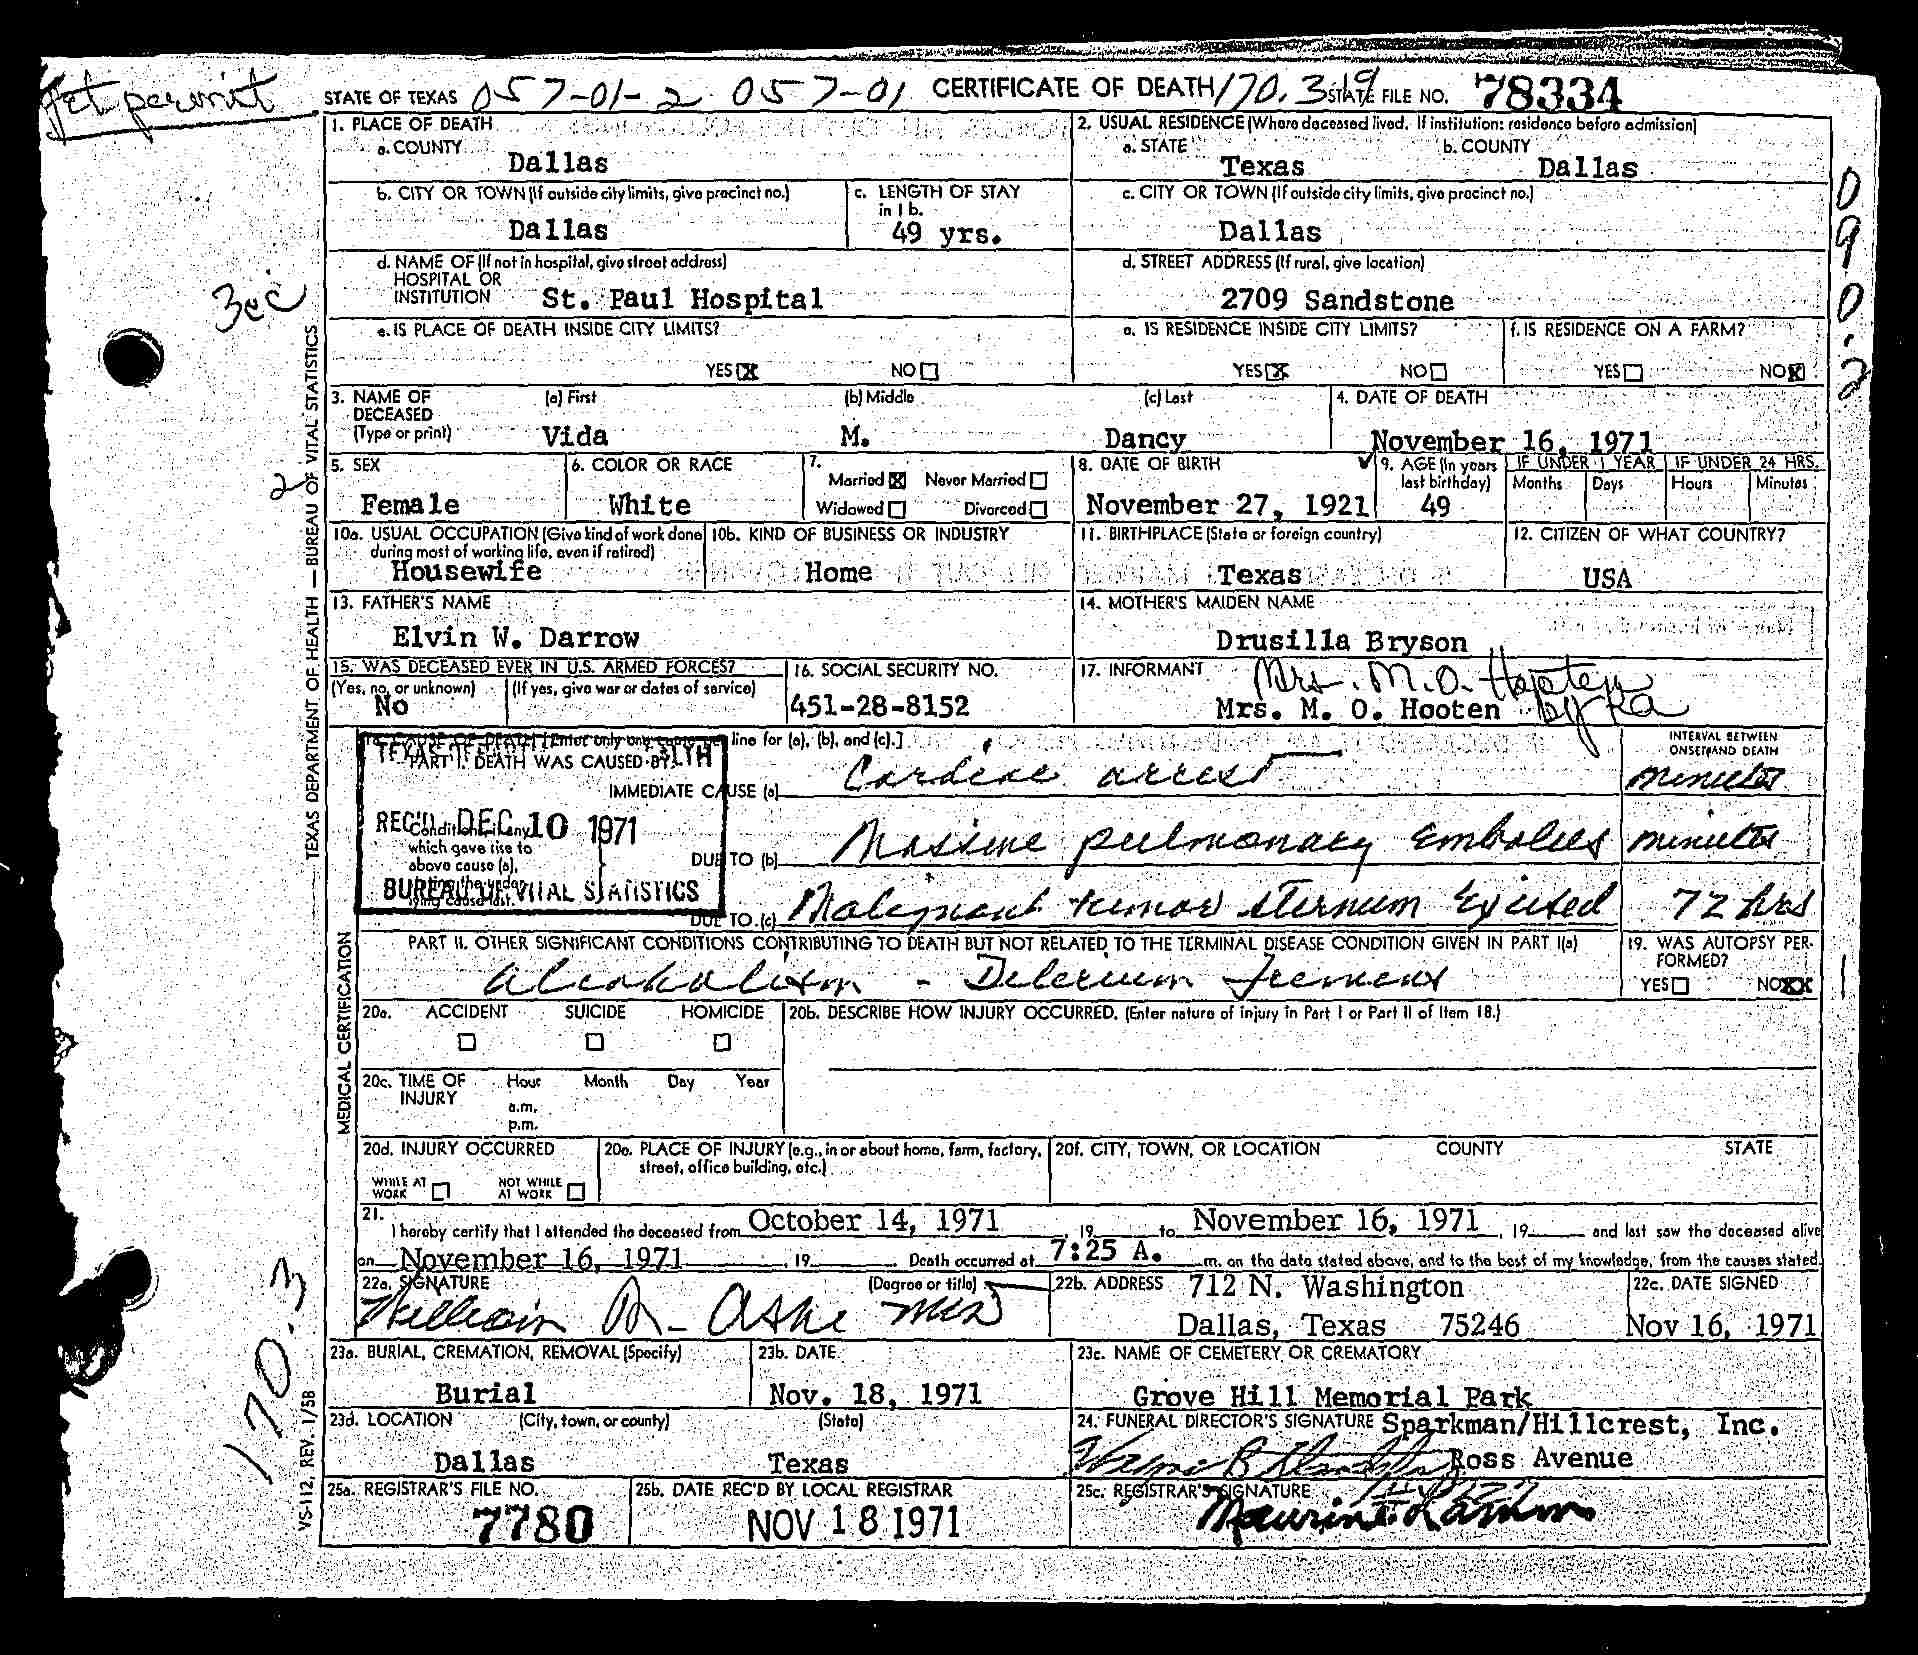 Get permit
STATE OF TEXAS 057-01-2 057-01 CERTIFICATE OF DEATH 170.3 19 STATE FILE NO. 78334
1. PLACE OF DEATH
a. COUNTY
Dallas
2. USUAL RESIDENCE (Where deceased lived. If institution: residence before admission)
a. STATE b. COUNTY
Texas Dallas
b. CITY OR TOWN (If outside city limits, give precinct no.)
Dallas
c. LENGTH OF STAY
in 1b.
49 yrs.
c. CITY OR TOWN (If outside city limits, give precinct no.)
Dallas
d. NAME OF (If not in hospital, give street address)
HOSPITAL OR
INSTITUTION St. Paul Hospital
d. STREET ADDRESS (If rural, give location)
2709 Sandstone
090.2
3cc
e. IS PLACE OF DEATH INSIDE CITY LIMITS?
YES X NO
e. IS RESIDENCE INSIDE CITY LIMITS?
YES X NO
f. IS RESIDENCE ON A FARM?
YES NO X
3. NAME OF
DECEASED
(Type or print)
(a) First (b) Middle (c) Last
Vida M. Dancy
4. DATE OF DEATH
November 16, 1971
2
5. SEX
Female
6. COLOR OR RACE
White
7.
Married X Never Married
Widowed Divorced
8. DATE OF BIRTH
November 27, 1921
9. AGE (In years
last birthday)
49
IF UNDER 1 YEAR IF UNDER 24 HRS.
Months Days Hours Minutes
10a. USUAL OCCUPATION (Give kind of work done
during most of working life, even if retired)
Housewife
10b. KIND OF BUSINESS OR INDUSTRY
Home
11. BIRTHPLACE (State or foreign country)
Texas
12. CITIZEN OF WHAT COUNTRY?
USA
13. FATHER'S NAME
Elvin W. Darrow
14. MOTHER'S MAIDEN NAME
Drusilla Bryson
15. WAS DECEASED EVER IN U.S. ARMED FORCES?
(Yes, no, or unknown) (If yes, give war or dates of service)
No
16. SOCIAL SECURITY NO.
451-28-8152
17. INFORMANT Mrs. M.O. Hooten
Mrs. M. O. Hooten by
TEXAS DEPARTMENT OF HEALTH — BUREAU OF VITAL STATISTICS
18. CAUSE OF DEATH [Enter only one cause per line for (a), (b), and (c).]
PART I. DEATH WAS CAUSED BY:
INTERVAL BETWEEN
ONSET AND DEATH
IMMEDIATE CAUSE (a) Cardiac arrest minutes
REC'D DEC 10 1971
BUREAU OF VITAL STATISTICS
Conditions, if any,
which gave rise to
above cause (a),
stating the under-
lying cause last.
DUE TO (b) Massive pulmonary embolus minutes
DUE TO (c) Malignant tumor sternum Excised 72 hrs
MEDICAL CERTIFICATION
PART II. OTHER SIGNIFICANT CONDITIONS CONTRIBUTING TO DEATH BUT NOT RELATED TO THE TERMINAL DISEASE CONDITION GIVEN IN PART I(a)
alcoholism - Delerium Tremens
19. WAS AUTOPSY PER-
FORMED?
YES NO XX
1
20a. ACCIDENT SUICIDE HOMICIDE
20b. DESCRIBE HOW INJURY OCCURRED. (Enter nature of injury in Part I or Part II of Item 18.)
20c. TIME OF Hour Month Day Year
INJURY
a.m.
p.m.
20d. INJURY OCCURRED
WHILE AT WORK NOT WHILE AT WORK
20e. PLACE OF INJURY (e.g., in or about home, farm, factory,
street, office building, etc.)
20f. CITY, TOWN, OR LOCATION COUNTY STATE
21.
I hereby certify that I attended the deceased from October 14, 1971 19 to November 16, 1971, 19 and last saw the deceased alive
on November 16, 1971, 19 Death occurred at 7:25 A. m. on the date stated above, and to the best of my knowledge, from the causes stated.
22a. SIGNATURE (Degree or title)
William R. Aske MD
22b. ADDRESS 712 N. Washington
Dallas, Texas 75246
22c. DATE SIGNED
Nov 16, 1971
170.3
23a. BURIAL, CREMATION, REMOVAL (Specify)
Burial
23b. DATE
Nov. 18, 1971
23c. NAME OF CEMETERY OR CREMATORY
Grove Hill Memorial Park
23d. LOCATION (City, town, or county) (State)
Dallas Texas
24. FUNERAL DIRECTOR'S SIGNATURE Sparkman/Hillcrest, Inc.
Ross Avenue
25a. REGISTRAR'S FILE NO.
7780
25b. DATE REC'D BY LOCAL REGISTRAR
NOV 18 1971
25c. REGISTRAR'S SIGNATURE
VS-112, REV. 1/58